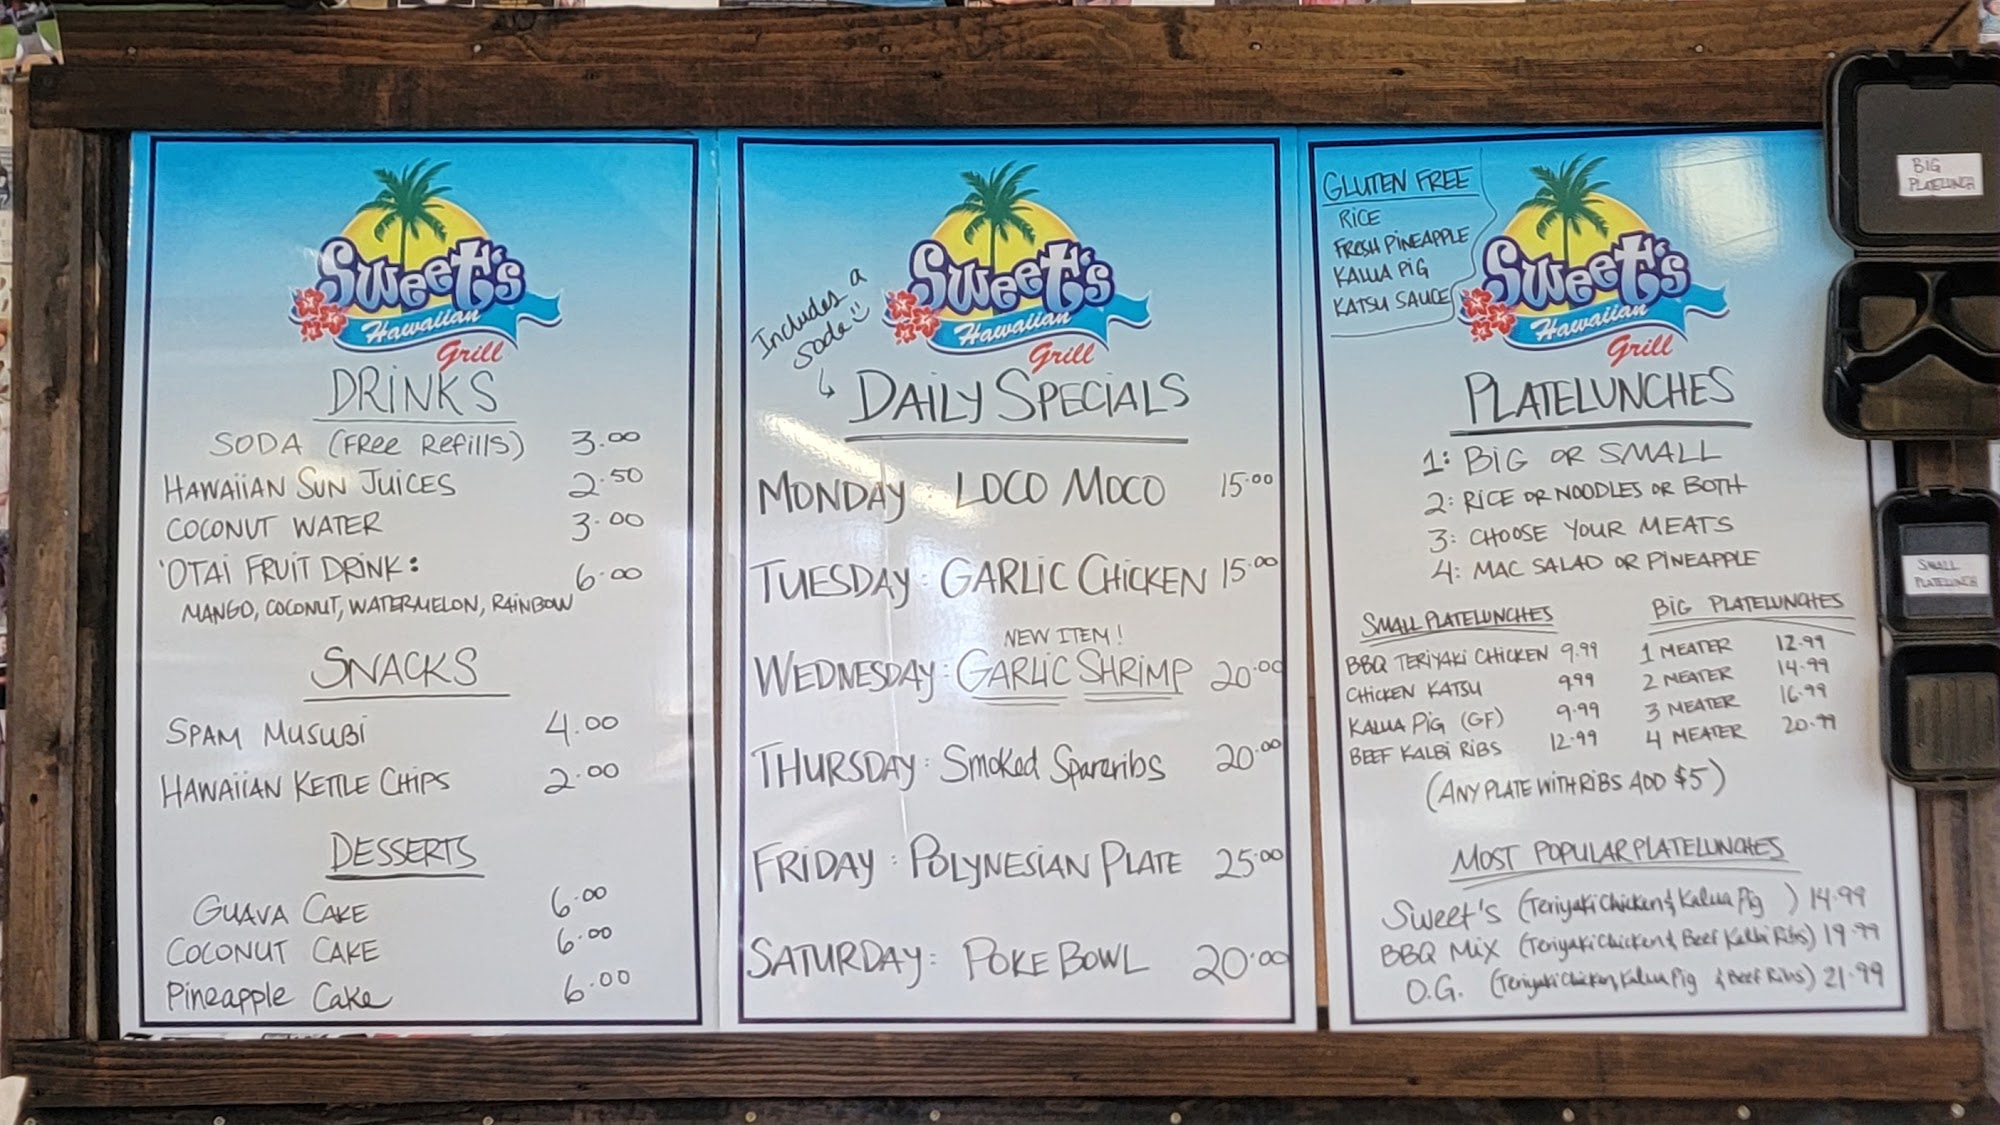 Sweet's
Hawaiian
Grill
DRINKS
SODA (FREE REFILLS) 3.00
HAWAIIAN SUN JUICES 2.50
COCONUT WATER 3.00
'OTAI FRUIT DRINK: 6.00
MANGO, COCONUT, WATERMELON, RAINBOW
SNACKS
SPAM MUSUBI 4.00
HAWAIIAN KETTLE CHIPS 2.00
DESSERTS
GUAVA CAKE 6.00
COCONUT CAKE 6.00
Pineapple Cake 6.00
Includes a
soda
Sweet's
Hawaiian
Grill
DAILY SPECIALS
MONDAY: LOCO MOCO 15.00
TUESDAY: GARLIC CHICKEN 15.00
NEW ITEM!
WEDNESDAY: GARLIC SHRIMP 20.00
THURSDAY: Smoked Spareribs 20.00
FRIDAY: POLYNESIAN PLATE 25.00
SATURDAY: POKE BOWL 20.00
GLUTEN FREE
RICE
FRESH PINEAPPLE
KALUA PIG
KATSU SAUCE
Sweet's
Hawaiian
Grill
PLATELUNCHES
1: BIG OR SMALL
2: RICE OR NOODLES OR BOTH
3: CHOOSE YOUR MEATS
4: MAC SALAD OR PINEAPPLE
SMALL PLATELUNCHES
BBQ TERIYAKI CHICKEN 9.99
CHICKEN KATSU 9.99
KALUA PIG (GF) 9.99
BEEF KALBI RIBS 12.99
BIG PLATELUNCHES
1 MEATER 12.99
2 MEATER 14.99
3 MEATER 16.99
4 MEATER 20.99
(ANY PLATE WITH RIBS ADD $5)
MOST POPULAR PLATELUNCHES
Sweet's (Teriyaki Chicken & Kalua Pig) 14.99
BBQ MIX (Teriyaki Chicken & Beef Kalbi Ribs) 19.99
O.G. (Teriyaki Chicken, Kalua Pig & Beef Ribs) 21.99
BIG
PLATELUNCH
SMALL
PLATELUNCH